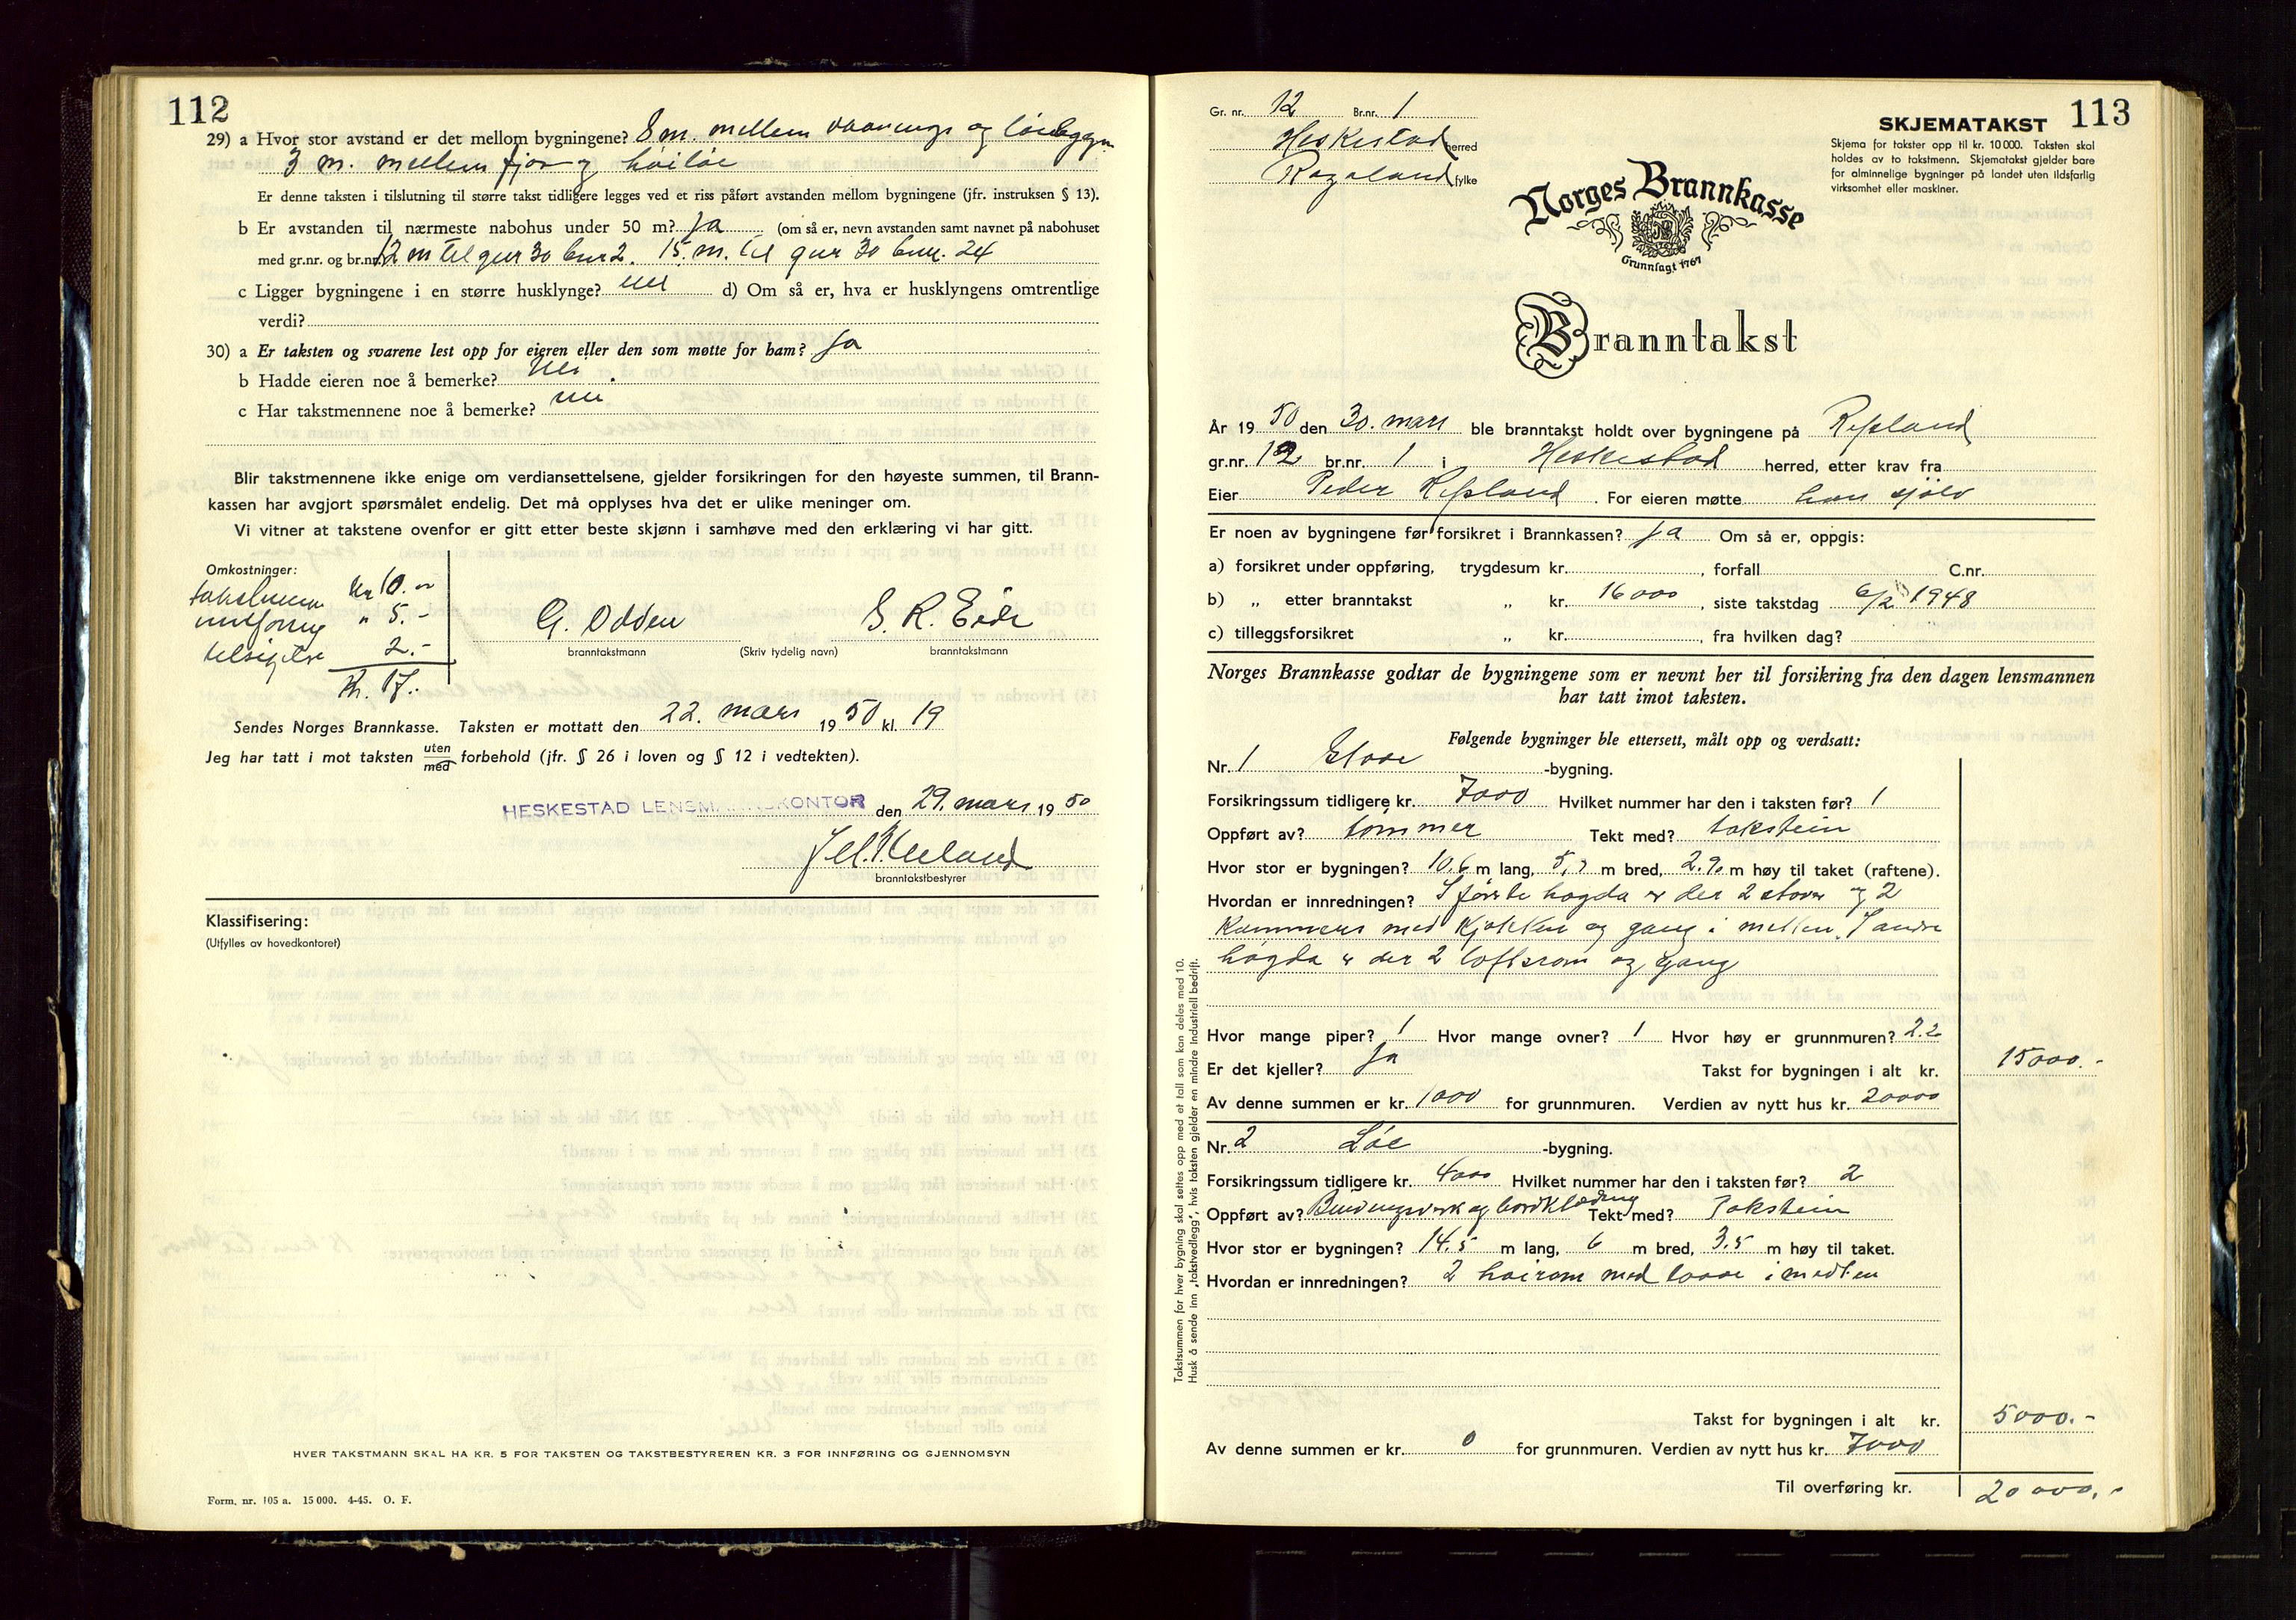 112
29) a Hvor stor avstand er det mellom bygningene? 8 m. mellem vaanings og löebygn.
3 m. mellem fjos og höilöe
Er denne taksten i tilslutning til større takst tidligere legges ved et riss påført avstanden mellom bygningene (jfr. instruksen § 13).
b Er avstanden til nærmeste nabohus under 50 m? ja (om så er, nevn avstanden samt navnet på nabohuset
med gr.nr. og br.nr. 12 m til gnr 30 bnr 2. 15. m. til gnr 30 bnr. 24
c Ligger bygningene i en større husklynge? nei d) Om så er, hva er husklyngens omtrentlige
verdi?
30) a Er taksten og svarene lest opp for eieren eller den som møtte for ham? Ja
b Hadde eieren noe å bemerke? Nei.
c Har takstmennene noe å bemerke? nei
Blir takstmennene ikke enige om verdiansettelsene, gjelder forsikringen for den høyeste summen, til Brann-
kassen har avgjort spørsmålet endelig. Det må opplyses hva det er ulike meninger om.
Vi vitner at takstene ovenfor er gitt etter beste skjønn i samhøve med den erklæring vi har gitt.
Omkostninger:
takstmenn kr 10.-
innföring " 5.-
tilsigelse 2.-
Kr. 17.-
G. Odden S. R. Eide
branntakstmann (Skriv tydelig navn) branntakstmann
Sendes Norges Brannkasse. Taksten er mottatt den 22. mars 1950 kl. 19
Jeg har tatt i mot taksten uten/med forbehold (jfr. § 26 i loven og § 12 i vedtekten).
HESKESTAD LENSMANNSKONTOR den 29. mars 1950
branntakstbestyrer
Klassifisering:
(Utfylles av hovedkontoret)
HVER TAKSTMANN SKAL HA KR. 5 FOR TAKSTEN OG TAKSTBESTYREREN KR. 3 FOR INNFØRING OG GJENNOMSYN
Form. nr. 105 a. 15 000. 4-45. O. F.
113
Gr. nr. 12 Br.nr. 1
Heskestad herred
Rogaland fylke
SKJEMATAKST
Skjema for takster opp til kr. 10 000. Taksten skal
holdes av to takstmenn. Skjematakst gjelder bare
for alminnelige bygninger på landet uten ildsfarlig
virksomhet eller maskiner.
Norges Brannkasse
Grunnlagt 1767
Branntakst
År 1950 den 30. mars ble branntakst holdt over bygningene på Refsland
gr.nr. 12 br.nr. 1 i Heskestad herred, etter krav fra
Eier Peder Refsland. For eieren møtte han sjölv
Er noen av bygningene før forsikret i Brannkassen? ja Om så er, oppgis:
a) forsikret under oppføring, trygdesum kr. , forfall C.nr.
b) „ etter branntakst „ kr. 16000, siste takstdag 6/2 1948
c) tilleggsforsikret „ kr. , fra hvilken dag?
Norges Brannkasse godtar de bygningene som er nevnt her til forsikring fra den dagen lensmannen
har tatt imot taksten.
Følgende bygninger ble ettersett, målt opp og verdsatt:
Nr. 1 Stove -bygning.
Forsikringssum tidligere kr. 7000 Hvilket nummer har den i taksten før? 1
Oppført av? tömmer Tekt med? takstein
Hvor stor er bygningen? 10.6 m lang, 5,7 m bred, 2.90 m høy til taket (raftene).
Hvordan er innredningen? I förste högda er der 2 stover og 2
Kammers med Kjökken og gang i mellen. I andre
högda er der 2 loftsrom og Gang
Hvor mange piper? 1 Hvor mange ovner? 1 Hvor høy er grunnmuren? 2.2
Er det kjeller? Ja Takst for bygningen i alt kr. 15000.-
Av denne summen er kr. 1000 for grunnmuren. Verdien av nytt hus kr. 20000
Nr. 2 Löe -bygning.
Forsikringssum tidligere kr. 4000 Hvilket nummer har den i taksten før? 2
Oppført av? Bindingsverk og bordklædning Tekt med? Takstein
Hvor stor er bygningen? 14.5 m lang, 6 m bred, 3.5 m høy til taket.
Hvordan er innredningen? 2 höirom med loove i medlen
Takst for bygningen i alt kr. 5000.-
Av denne summen er kr. 0 for grunnmuren. Verdien av nytt hus kr. 7000
Til overføring kr. 20000.-
Takstsummen for hver bygning skal settes opp med et tall som kan deles med 10.
Husk å sende inn „takstvedlegg", hvis taksten gjelder en mindre industriell bedrift.